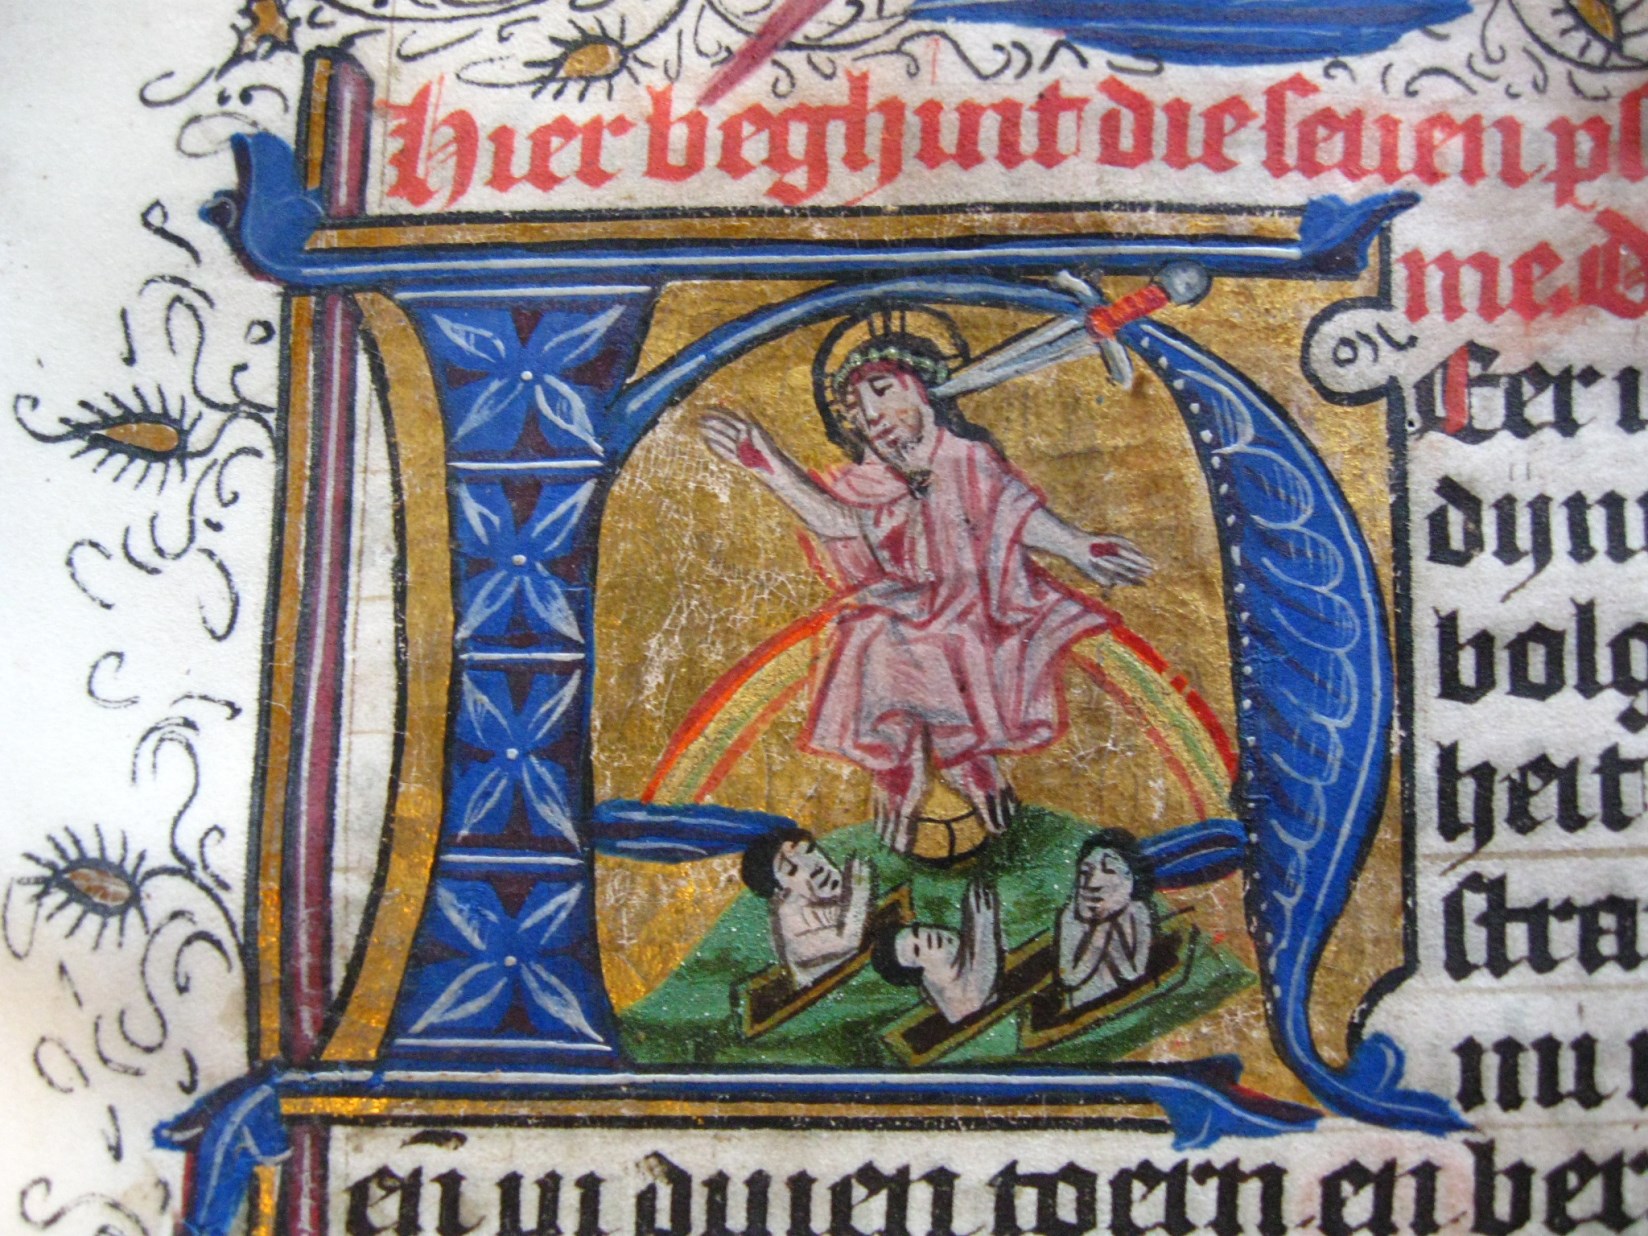 Hier beghint die seuen
me.
HEer i
dijn
bolg
heit
stra
nu
eñ in dinen toern en ber